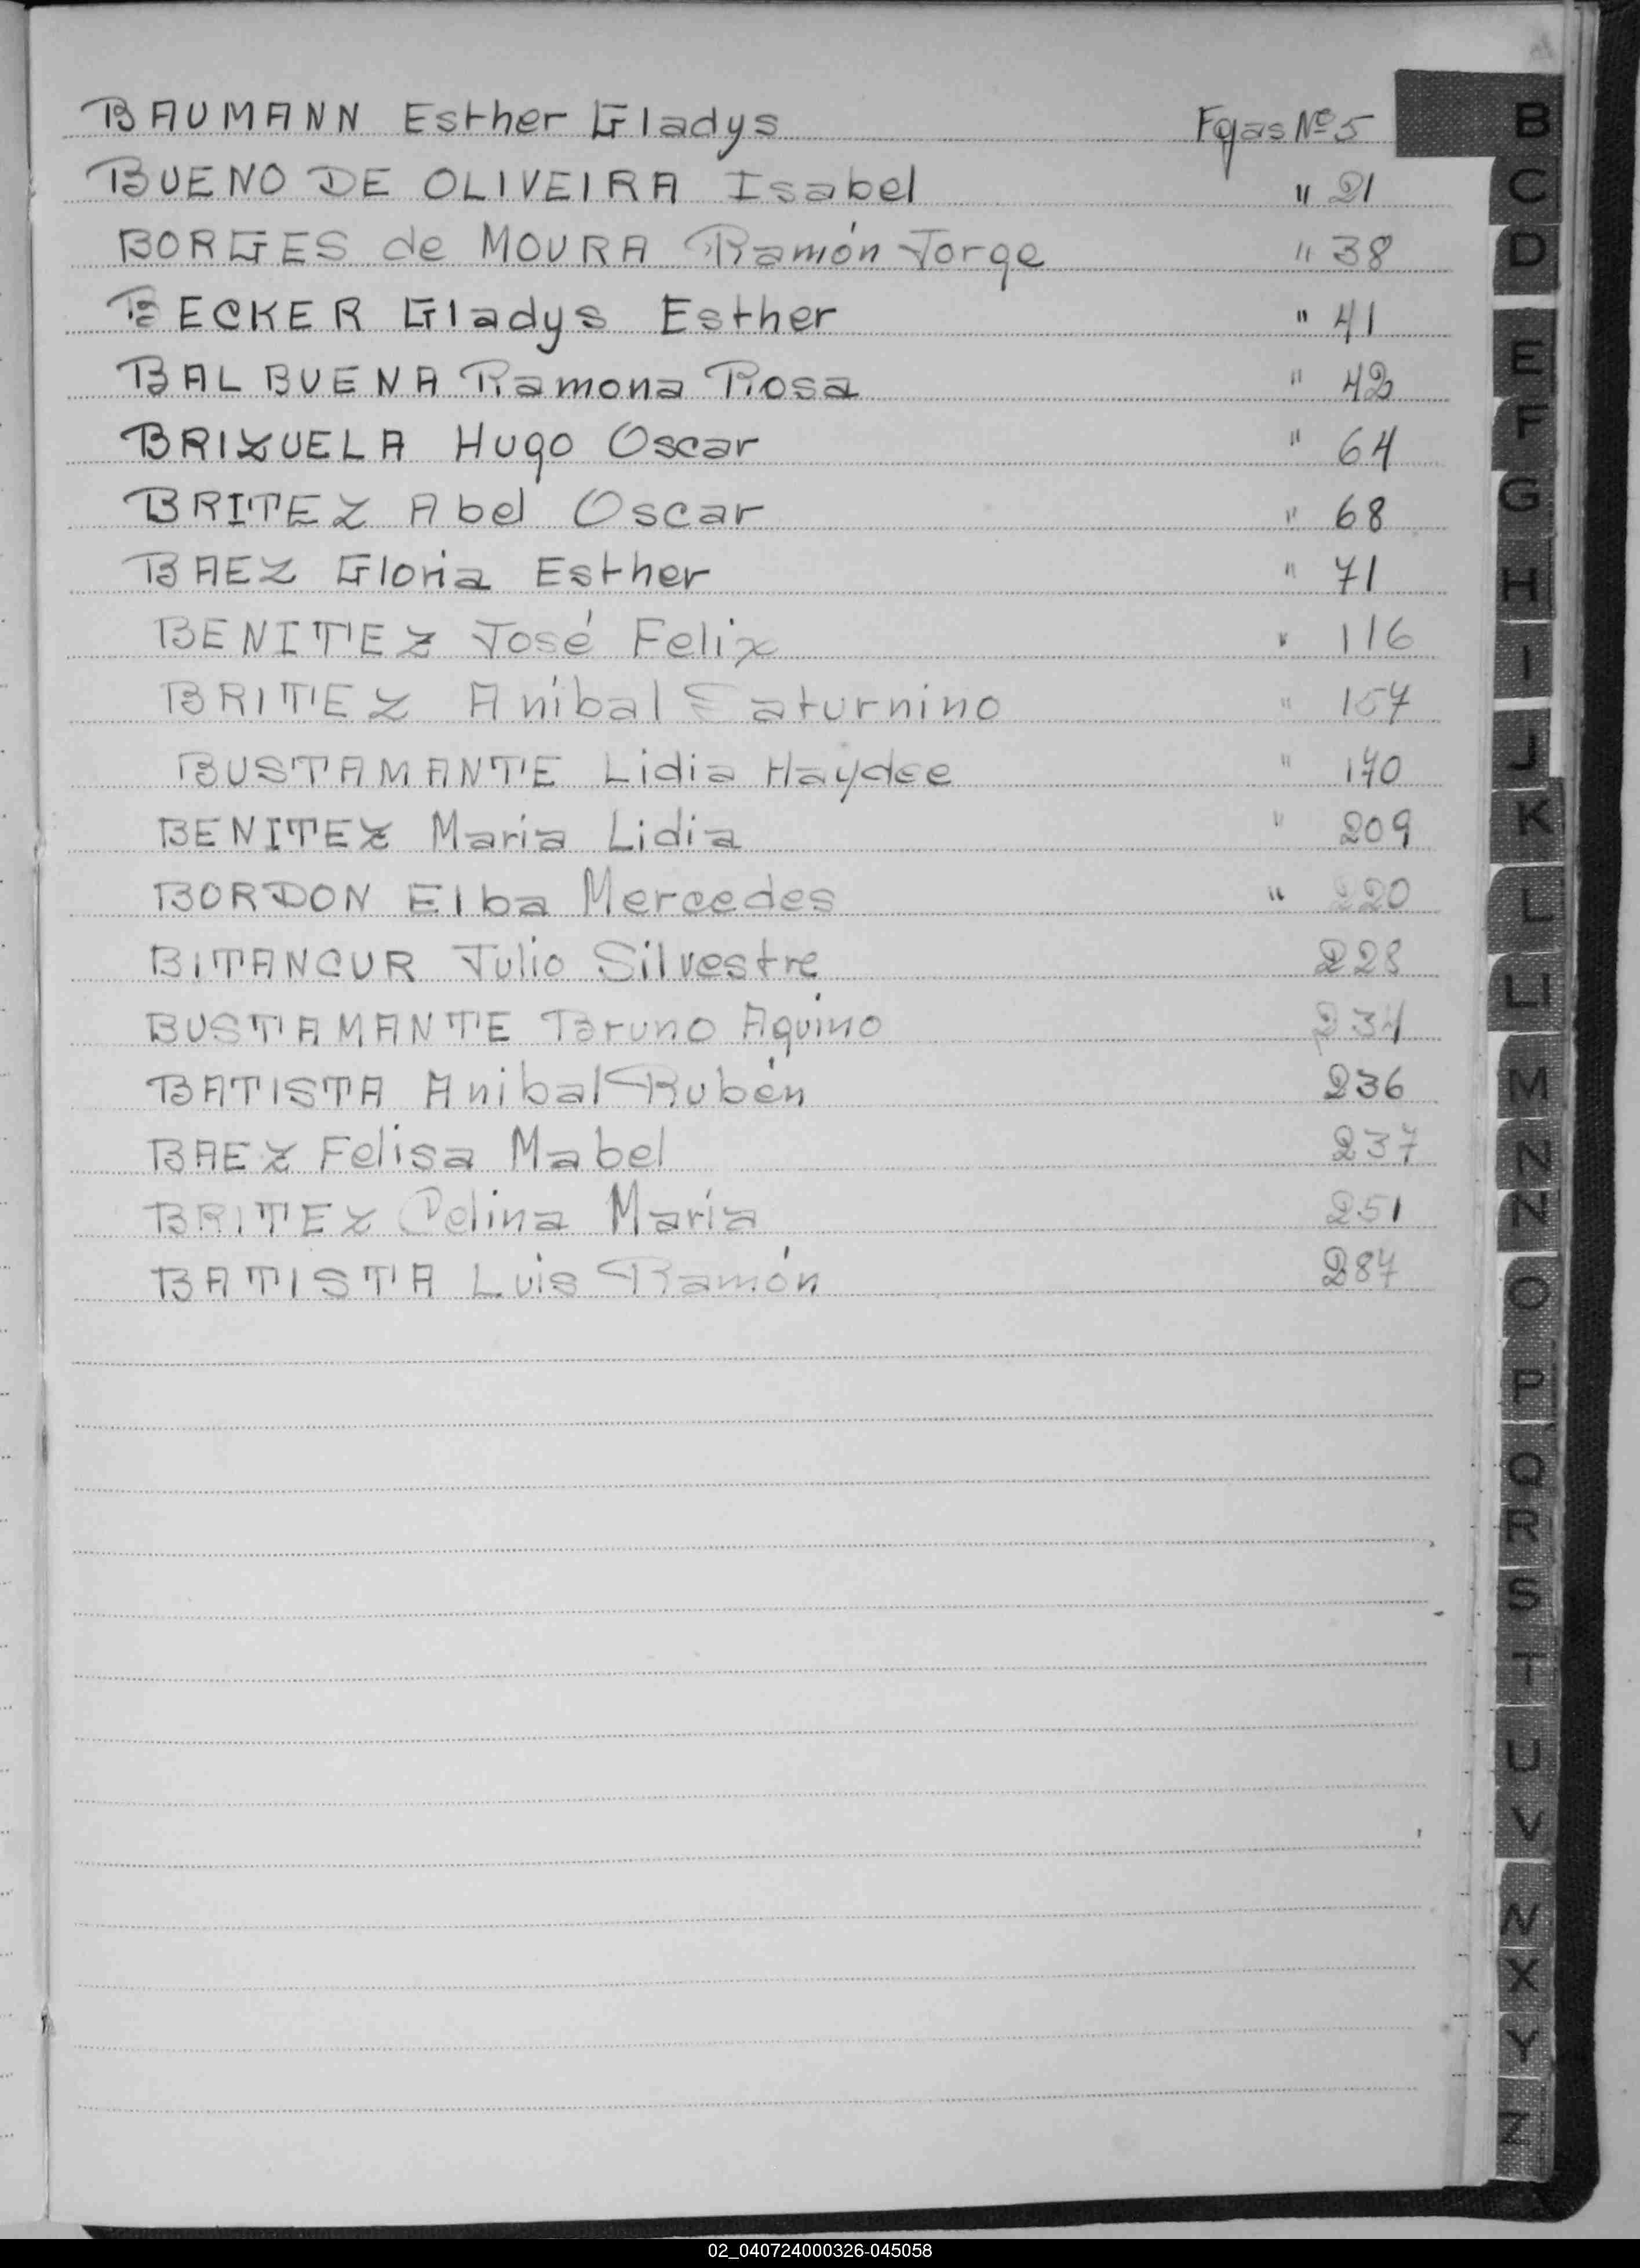 BAUMANN Esther Gladys Fojas Nº 5
BUENO DE OLIVEIRA Isabel " 21
BORGES de MOURA Ramón Jorge " 38
BECKER Gladys Esther " 41
BALBUENA Ramona Rosa " 42
BRIZUELA Hugo Oscar " 64
BRITEZ Abel Oscar " 68
BAEZ Gloria Esther " 71
BENITEZ José Felix " 116
BRITEZ Anibal Saturnino " 157
BUSTAMANTE Lidia Haydee " 170
BENITEZ Maria Lidia " 209
BORDON Elba Mercedes " 220
BITANCUR Julio Silvestre 228
BUSTAMANTE Bruno Aquino 234
BATISTA Anibal Rubén 236
BAEZ Felisa Mabel 237
BRITEZ Celina María 251
BATISTA Luis Ramón 287
B
C
D
E
F
G
H
I
J
K
L
LL
M
N
Ñ
O
P
Q
R
S
T
U
V
X
Y
Z
02_040724000326-045058